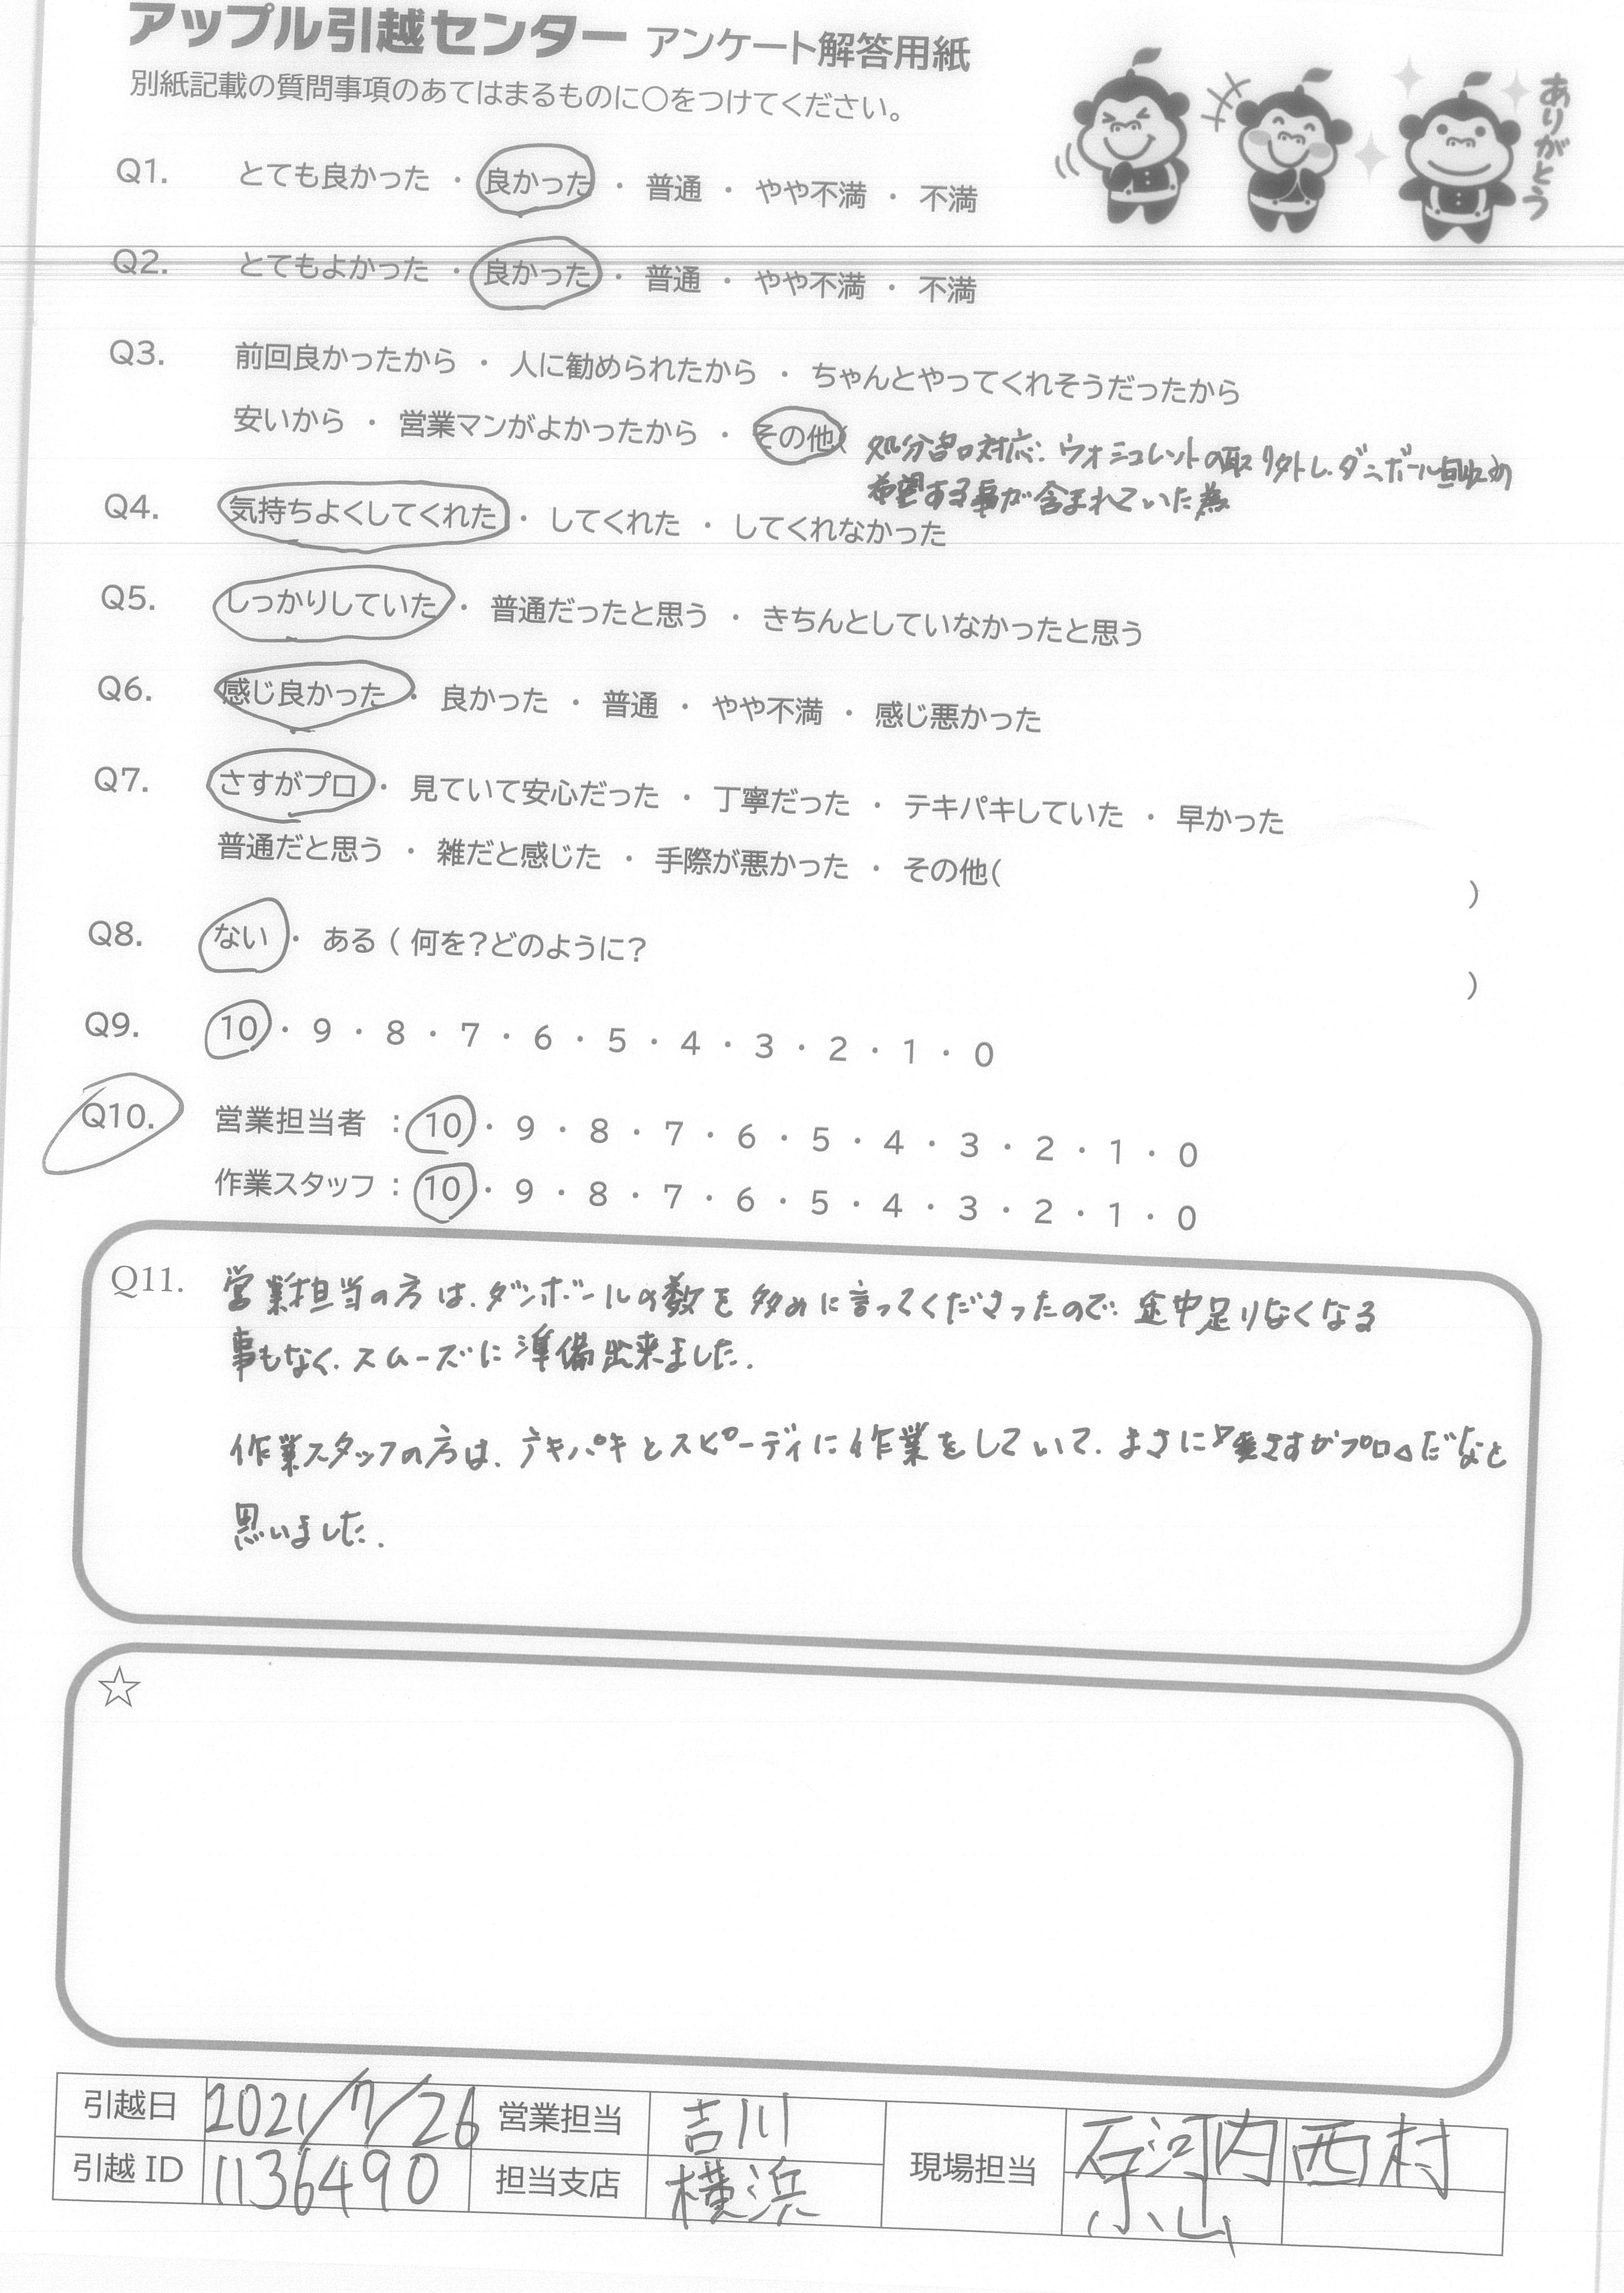 アップル引越センター アンケート解答用紙
別紙記載の質問事項のあてはまるものに○をつけてください。
ありがとう
Q1. とても良かった ・ 良かった ・ 普通 ・ やや不満 ・ 不満
Q2. とてもよかった ・ 良かった ・ 普通 ・ やや不満 ・ 不満
Q3. 前回良かったから ・ 人に勧められたから ・ ちゃんとやってくれそうだったから
安いから ・ 営業マンがよかったから ・ その他( 処分品の対応、ウォシュレットの取り外し、ダンボール回収の
希望する事が含まれていた為
Q4. 気持ちよくしてくれた ・ してくれた ・ してくれなかった
Q5. しっかりしていた ・ 普通だったと思う ・ きちんとしていなかったと思う
Q6. 感じ良かった ・ 良かった ・ 普通 ・ やや不満 ・ 感じ悪かった
Q7. さすがプロ ・ 見ていて安心だった ・ 丁寧だった ・ テキパキしていた ・ 早かった
普通だと思う ・ 雑だと感じた ・ 手際が悪かった ・ その他( )
Q8. ない ・ ある ( 何を?どのように? )
Q9. 10 ・ 9 ・ 8 ・ 7 ・ 6 ・ 5 ・ 4 ・ 3 ・ 2 ・ 1 ・ 0
Q10. 営業担当者 : 10 ・ 9 ・ 8 ・ 7 ・ 6 ・ 5 ・ 4 ・ 3 ・ 2 ・ 1 ・ 0
作業スタッフ : 10 ・ 9 ・ 8 ・ 7 ・ 6 ・ 5 ・ 4 ・ 3 ・ 2 ・ 1 ・ 0
Q11. 営業担当の方は、ダンボールの数を多めに言ってくださったので、途中足りなくなる
事もなく、スムーズに準備出来ました。
作業スタッフの方は、テキパキとスピーディに作業をしていて、まさに『さすがプロ』だなと
思いました。
☆
引越日 2021/7/26 営業担当 吉川 現場担当 石河内 西村
引越 ID 1136490 担当支店 横浜 小山